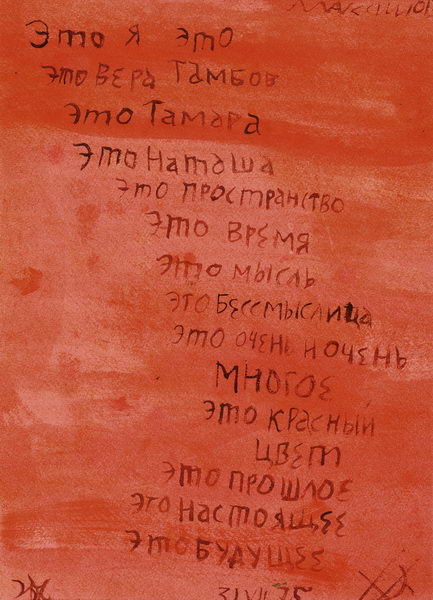 Это я это
это вера тамбов
это Тамара
это Наташа
это пространство
это время
это мысль
это бессмыслица
это очень и очень
многое
это красный
цвет
это прошлое
это настоящее
это будущее
31 VII 75